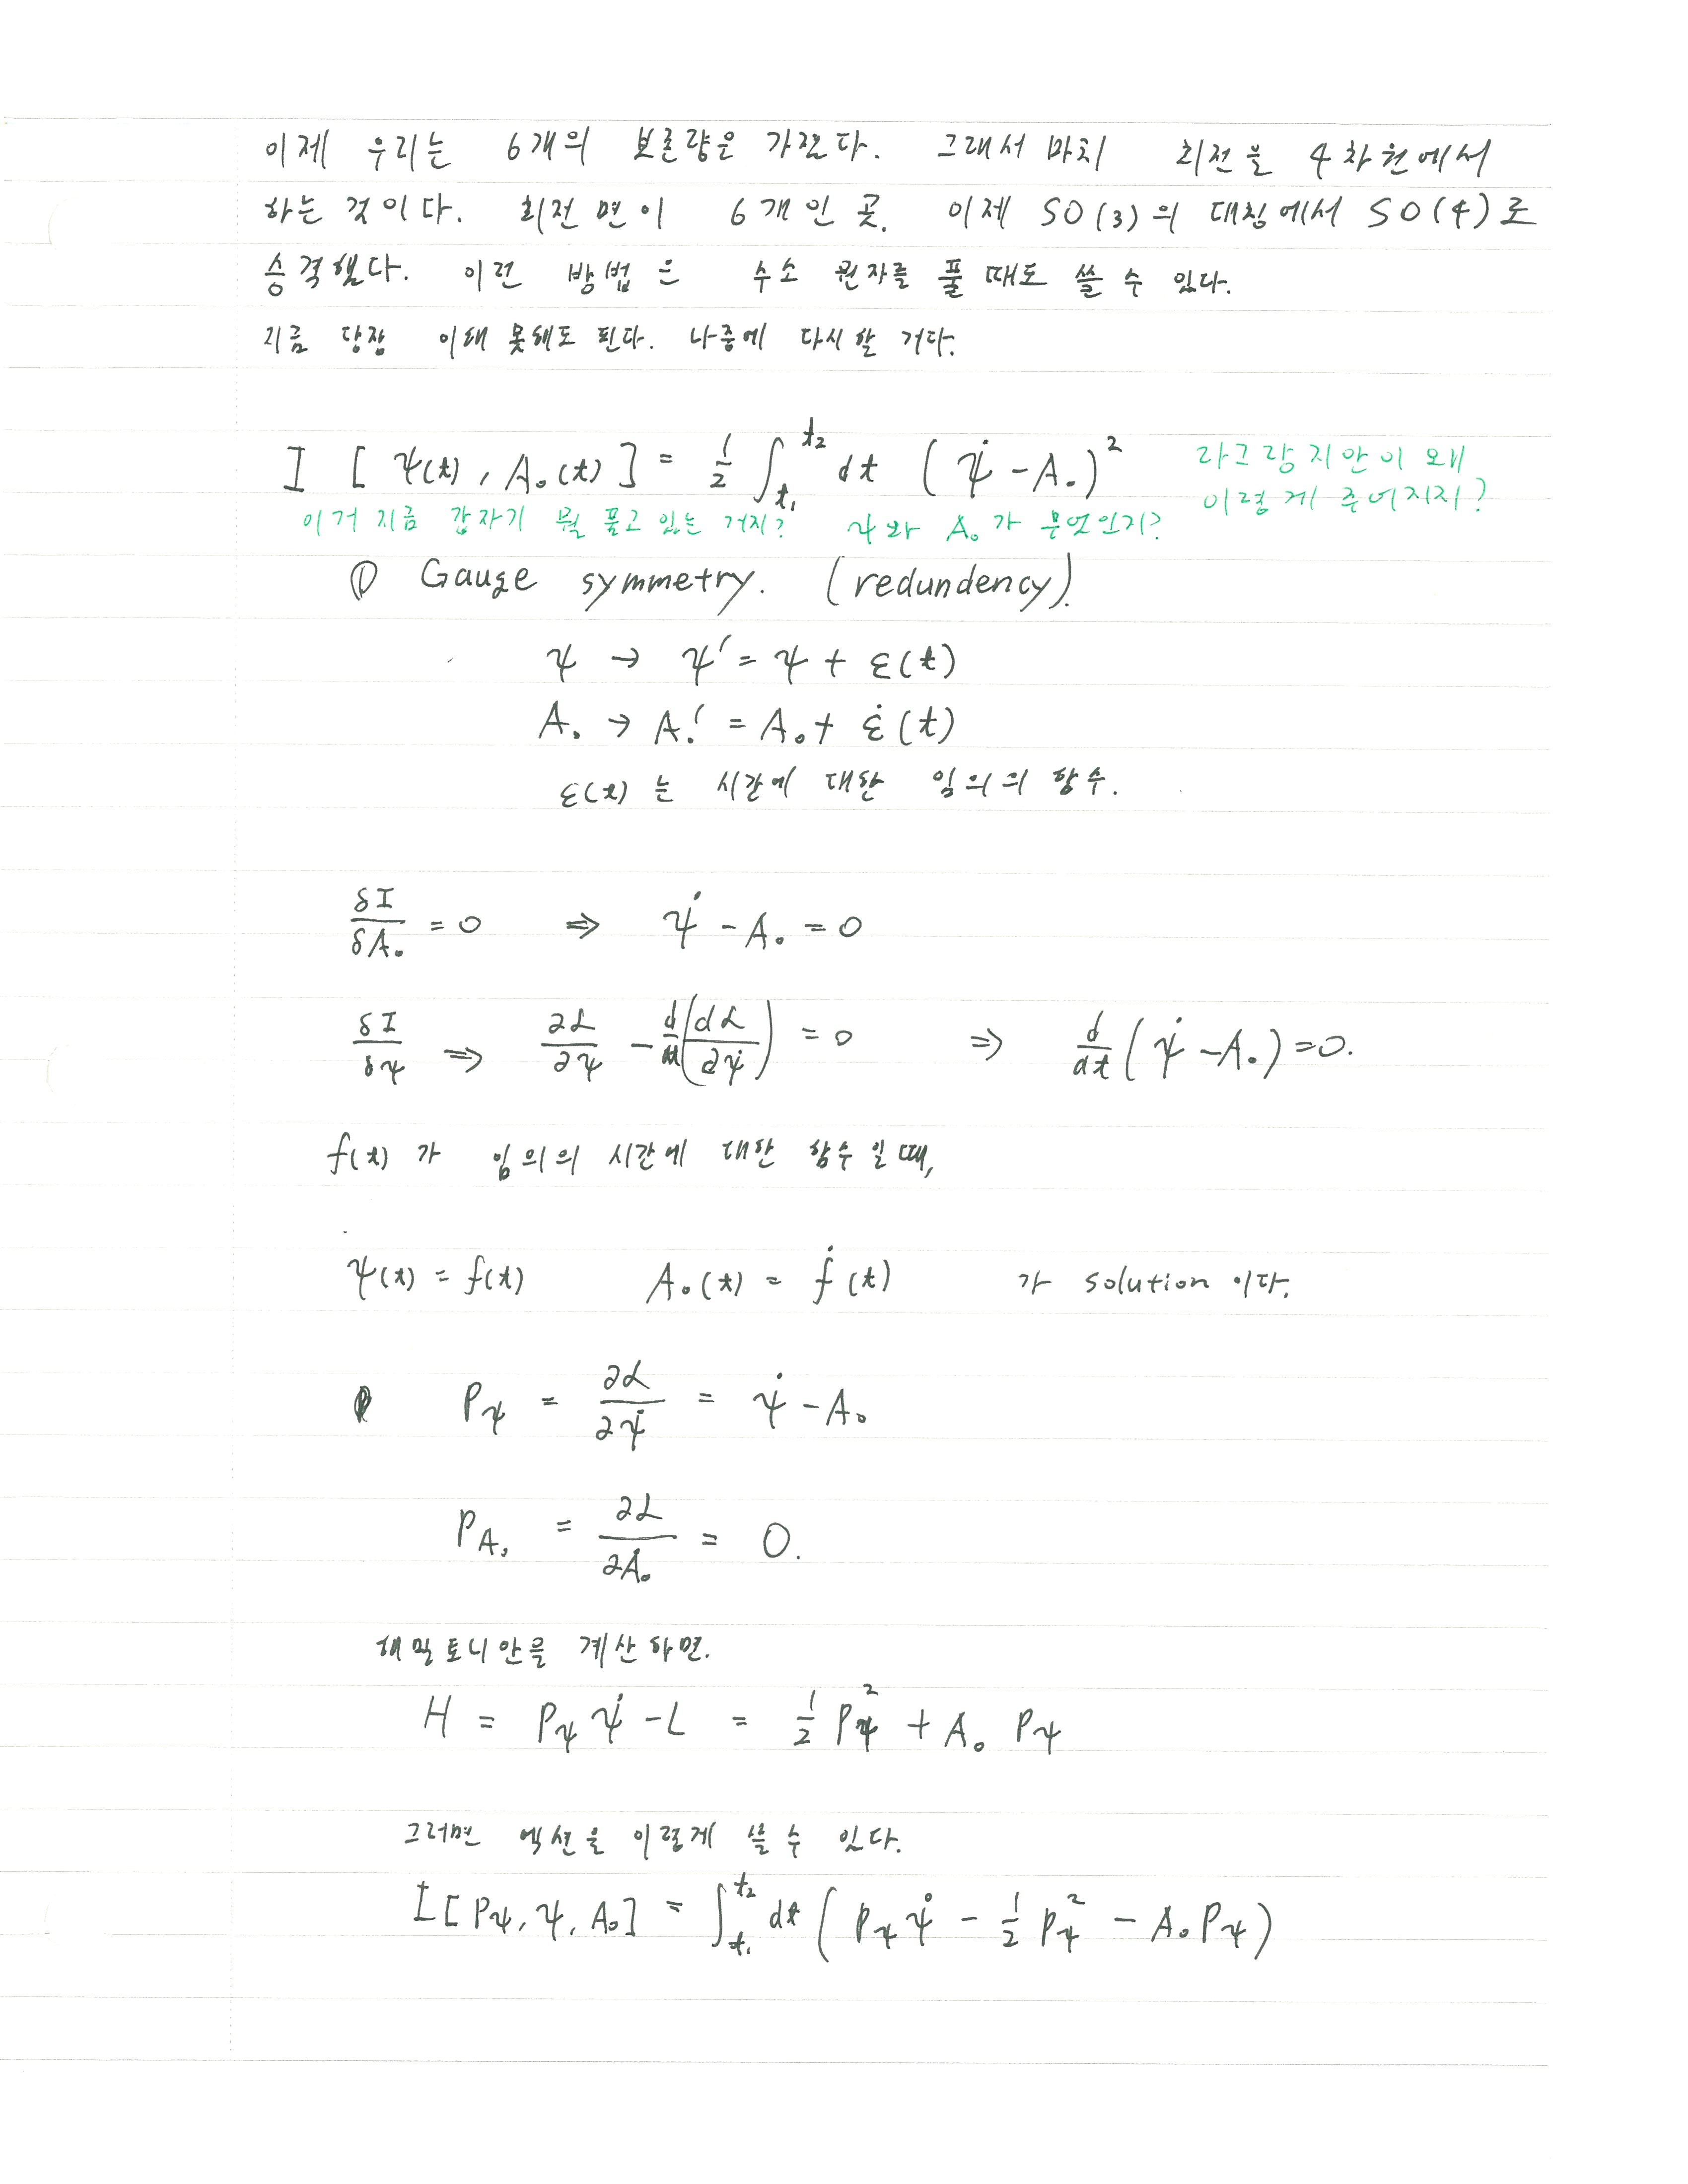 이제 우리는 6개의 보존량은 가진다. 그래서 마치 회전을 4차원에서
하는 것이다. 회전면이 6개인 곳. 이제 SO(3)의 대칭에서 SO(4)로
승격했다. 이런 방법은 수소 원자를 풀 때도 쓸 수 있다.
지금 당장 이해 못해도 된다. 나중에 다시 할 거다.
I [ψ(t), A₀(t)] = 1/2 ∫_{t₁}^{t₂} dt (ψ̇ - A₀)²
라그랑지안이 왜
이렇게 주어지지?
이거 지금 갑자기 뭘 풀고 있는 거지? ψ와 A₀가 무엇인지?
① Gauge symmetry. (redundency).
ψ → ψ' = ψ + ε(t)
A₀ → A₀' = A₀ + ε̇(t)
ε(t)는 시간에 대한 임의의 함수.
δI/δA₀ = 0 ⇒ ψ̇ - A₀ = 0
δI/δψ ⇒ ∂L/∂ψ - d/dt(dL/∂ψ̇) = 0 ⇒ d/dt(ψ̇ - A₀) = 0.
f(t)가 임의의 시간에 대한 함수일 때,
ψ(t) = f(t) A₀(t) = ḟ(t) 가 solution 이다.
P_ψ = ∂L/∂ψ̇ = ψ̇ - A₀
P_A₀ = ∂L/∂Ȧ₀ = 0.
해밀토니안을 계산하면.
H = P_ψ ψ̇ - L = 1/2 P_ψ² + A₀ P_ψ
그러면 액션을 이렇게 쓸 수 있다.
I[P_ψ, ψ, A₀] = ∫_{t₁}^{t₂} dt (P_ψ ψ̇ - 1/2 P_ψ² - A₀ P_ψ)